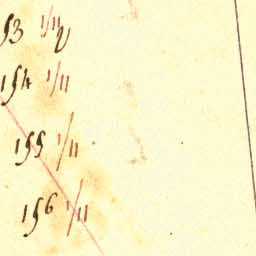 53 1/11
154 1/11
155 1/11
156 1/11